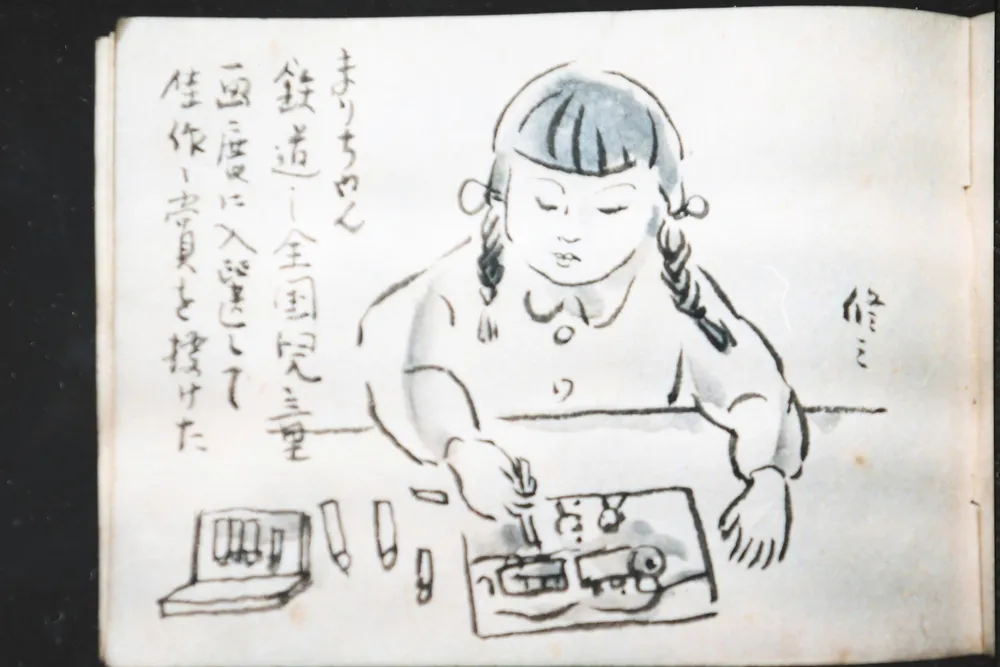 まりちゃん
鉄道の全国児童
画展に入選して
佳作の賞を授けた
修三